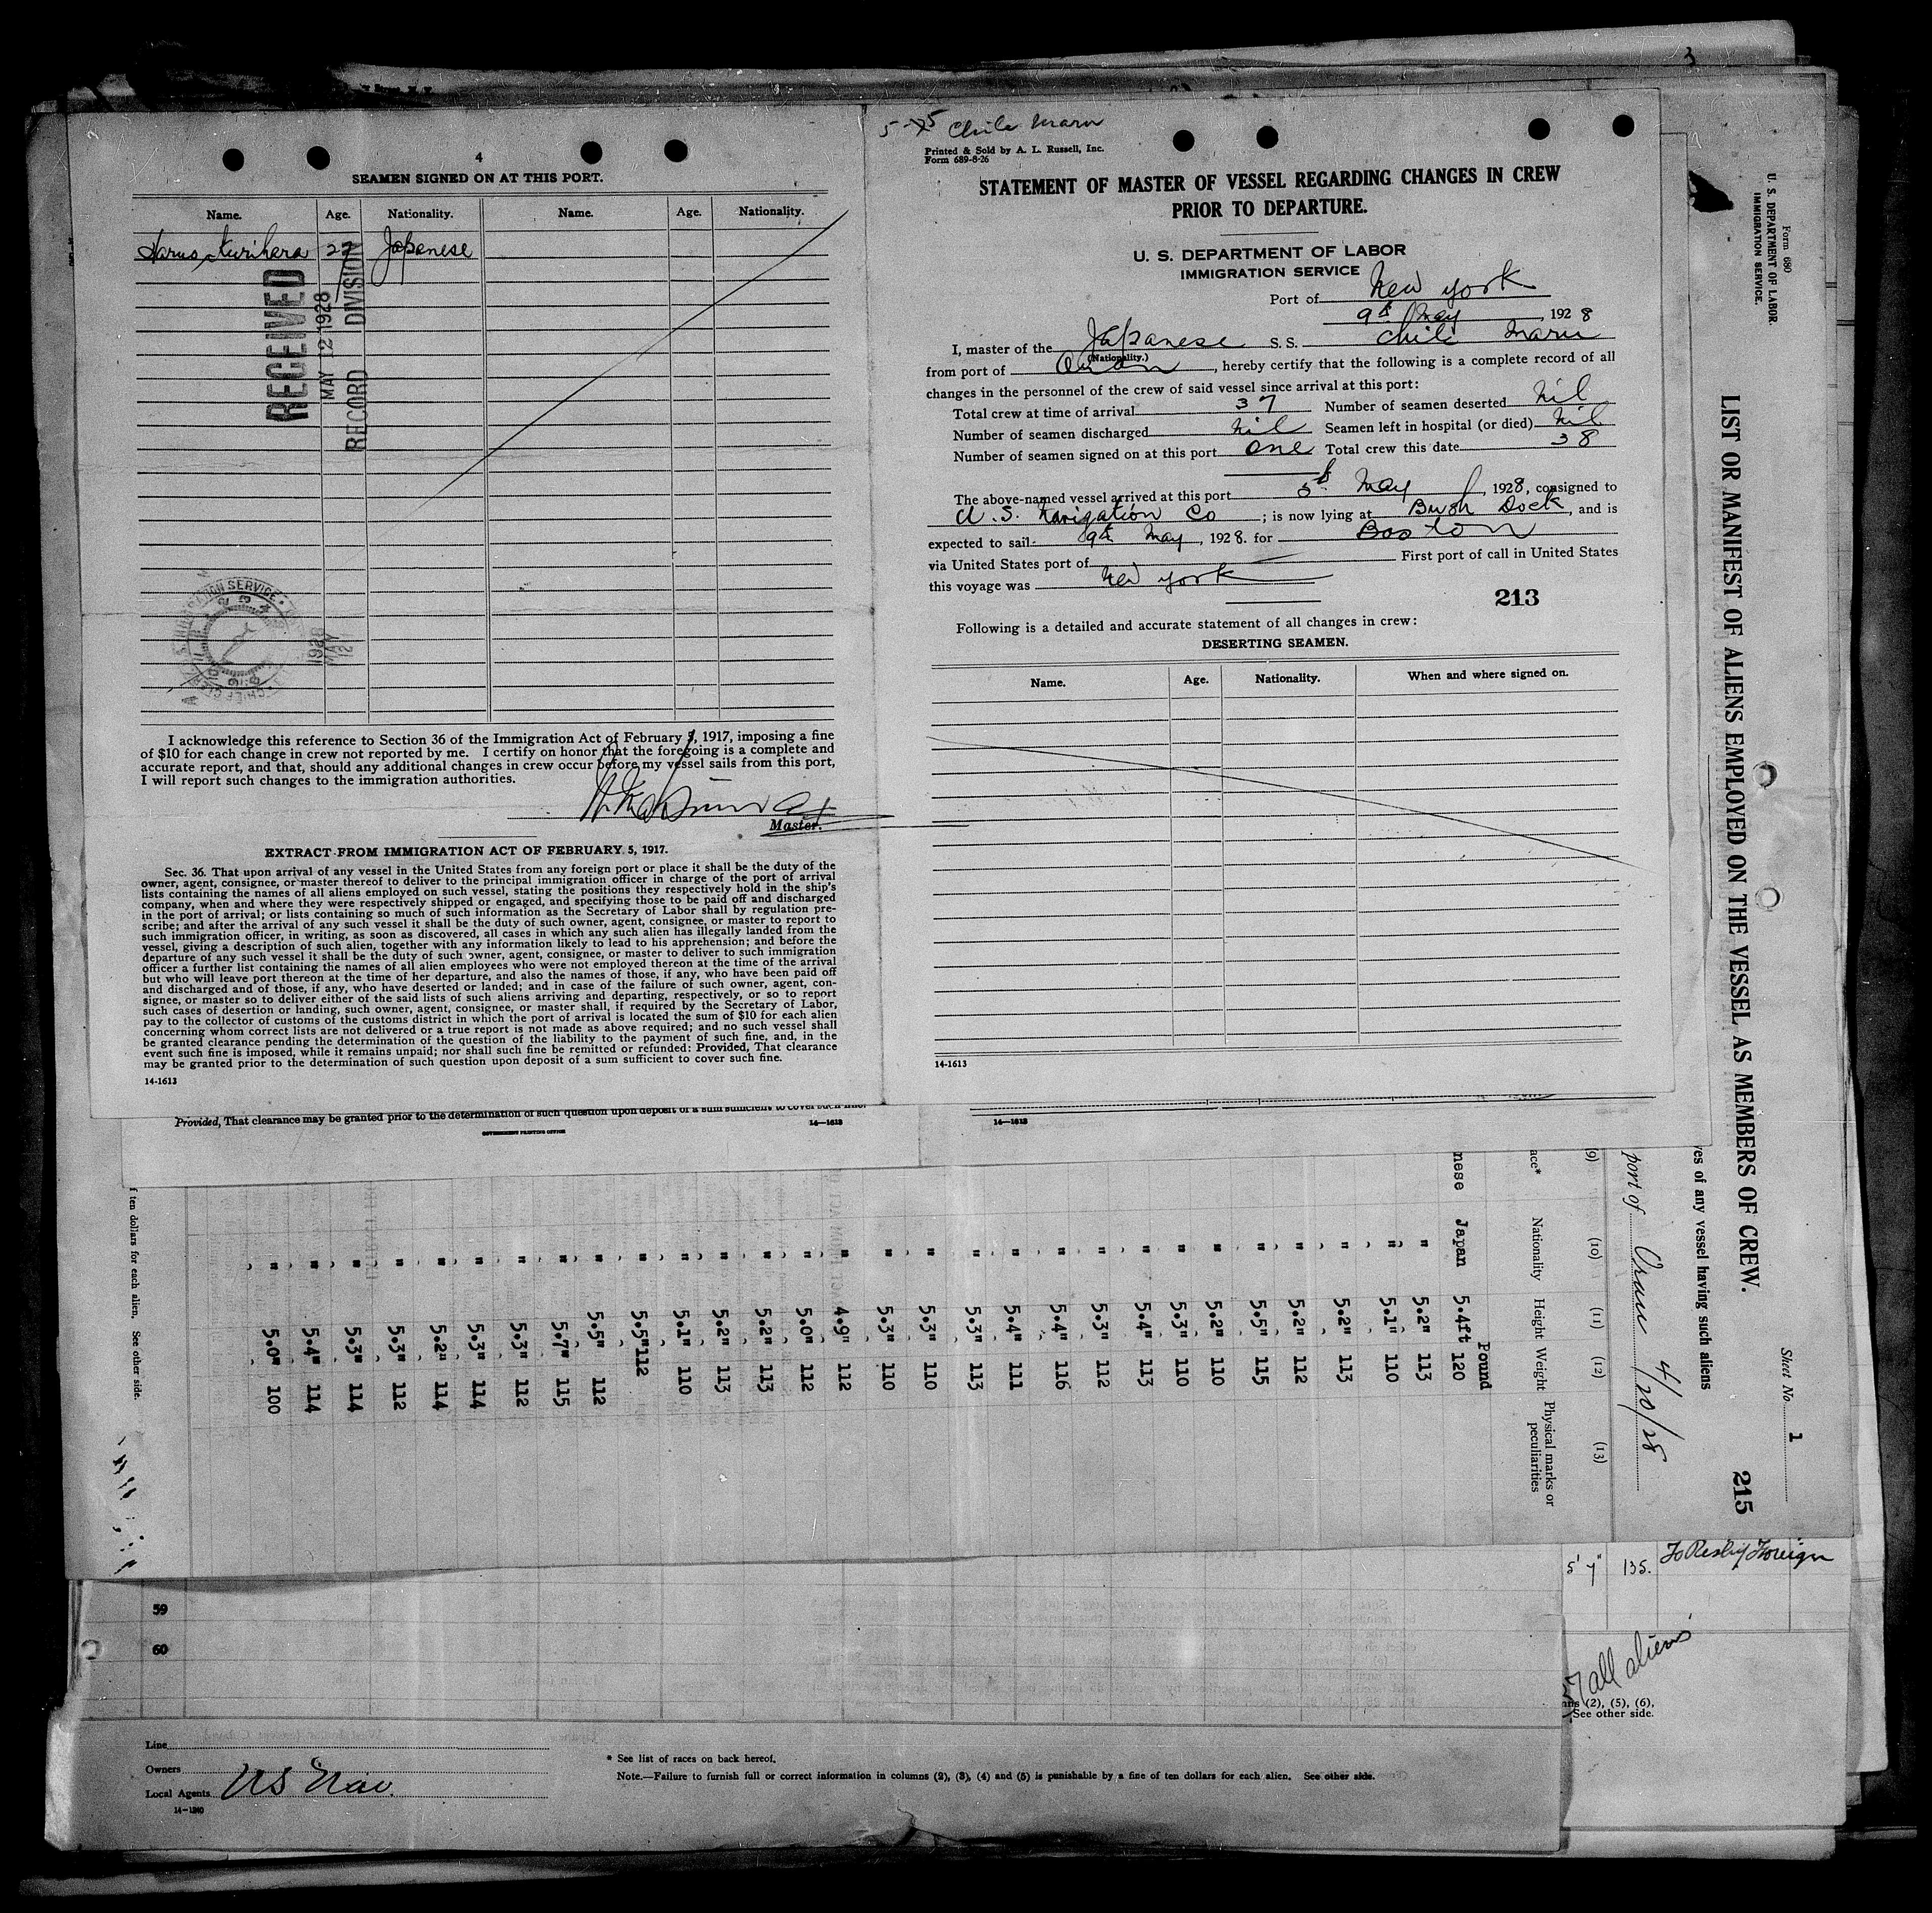 3
4
SEAMEN SIGNED ON AT THIS PORT.
Name. Age. Nationality. Name. Age. Nationality.
Kurihara 27 Japanese
RECEIVED
MAY 12 1928
RECORD DIVISION
IMMIGRATION SERVICE
1928
MAY
12
I acknowledge this reference to Section 36 of the Immigration Act of February 5, 1917, imposing a fine
of $10 for each change in crew not reported by me. I certify on honor that the foregoing is a complete and
accurate report, and that, should any additional changes in crew occur before my vessel sails from this port,
I will report such changes to the immigration authorities.
Master.
EXTRACT FROM IMMIGRATION ACT OF FEBRUARY 5, 1917.
Sec. 36. That upon arrival of any vessel in the United States from any foreign port or place it shall be the duty of the
owner, agent, consignee, or master thereof to deliver to the principal immigration officer in charge of the port of arrival
lists containing the names of all aliens employed on such vessel, stating the positions they respectively hold in the ship's
company, when and where they were respectively shipped or engaged, and specifying those to be paid off and discharged
in the port of arrival; or lists containing so much of such information as the Secretary of Labor shall by regulation pre-
scribe; and after the arrival of any such vessel it shall be the duty of such owner, agent, consignee, or master to report to
such immigration officer, in writing, as soon as discovered, all cases in which any such alien has illegally landed from the
vessel, giving a description of such alien, together with any information likely to lead to his apprehension; and before the
departure of any such vessel it shall be the duty of such owner, agent, consignee, or master to deliver to such immigration
officer a further list containing the names of all alien employees who were not employed thereon at the time of the arrival
but who will leave port thereon at the time of her departure, and also the names of those, if any, who have been paid off
and discharged and of those, if any, who have deserted or landed; and in case of the failure of such owner, agent, con-
signee, or master so to deliver either of the said lists of such aliens arriving and departing, respectively, or so to report
such cases of desertion or landing, such owner, agent, consignee, or master shall, if required by the Secretary of Labor,
pay to the collector of customs of the customs district in which the port of arrival is located the sum of $10 for each alien
concerning whom correct lists are not delivered or a true report is not made as above required; and no such vessel shall
be granted clearance pending the determination of the question of the liability to the payment of such fine, and, in the
event such fine is imposed, while it remains unpaid; nor shall such fine be remitted or refunded: Provided, That clearance
may be granted prior to the determination of such question upon deposit of a sum sufficient to cover such fine.
14-1613
5-5 Chile Maru
Printed & Sold by A. L. Russell, Inc.
Form 689-8-26
STATEMENT OF MASTER OF VESSEL REGARDING CHANGES IN CREW
PRIOR TO DEPARTURE.
U. S. DEPARTMENT OF LABOR
IMMIGRATION SERVICE
Port of New York
9th May, 1928
I, master of the Japanese S. S. Chile Maru
(Nationality.)
from port of Oran, hereby certify that the following is a complete record of all
changes in the personnel of the crew of said vessel since arrival at this port:
Total crew at time of arrival 37 Number of seamen deserted Nil
Number of seamen discharged Nil Seamen left in hospital (or died) Nil
Number of seamen signed on at this port One Total crew this date 38
The above-named vessel arrived at this port 5th May, 1928, consigned to
U. S. Navigation Co; is now lying at Bush Dock, and is
expected to sail 9th May, 1928. for Boston
via United States port of First port of call in United States
this voyage was New York
213
Following is a detailed and accurate statement of all changes in crew:
DESERTING SEAMEN.
Name. Age. Nationality. When and where signed on.
14-1613
Provided, That clearance may be granted prior to the determination of such question upon deposit of a sum sufficient to cover such fine.
GOVERNMENT PRINTING OFFICE
14—1613
14—1613
Form 680
U. S. DEPARTMENT OF LABOR
IMMIGRATION SERVICE.
Sheet No. 1
215
LIST OR MANIFEST OF ALIENS EMPLOYED ON THE VESSEL AS MEMBERS OF CREW.
ves of any vessel having such aliens
port of Oran 4/20/28
(9) (10) (11) (12) (13)
ace* Nationality Height Weight Physical marks or
peculiarities
Pound
nese Japan 5.4ft 120
" 5.2" 113
" 5.1" 110
" 5.2" 113
" 5.2" 112
" 5.5" 115
" 5.2" 110
" 5.3" 110
" 5.4" 113
" 5.3" 112
" 5.4" 116
" 5.4" 111
" 5.3" 113
" 5.3" 110
" 5.3" 110
" 4.9" 112
" 5.0" 112
" 5.2" 113
" 5.2" 113
" 5.1" 110
" 5.5" 112
" 5.5" 112
" 5.7" 115
" 5.3" 112
" 5.3" 114
" 5.2" 114
" 5.3" 112
" 5.3" 114
" 5.4" 114
" 5.0" 100
f ten dollars for each alien. See other side.
5' 7" 135. Foreign
all aliens
(2), (5), (6).
See other side.
59
60
Line
Owners
Local Agents US Nav.
14—1240
* See list of races on back hereof.
Note.—Failure to furnish full or correct information in columns (2), (3), (4) and (5) is punishable by a fine of ten dollars for each alien. See other side.